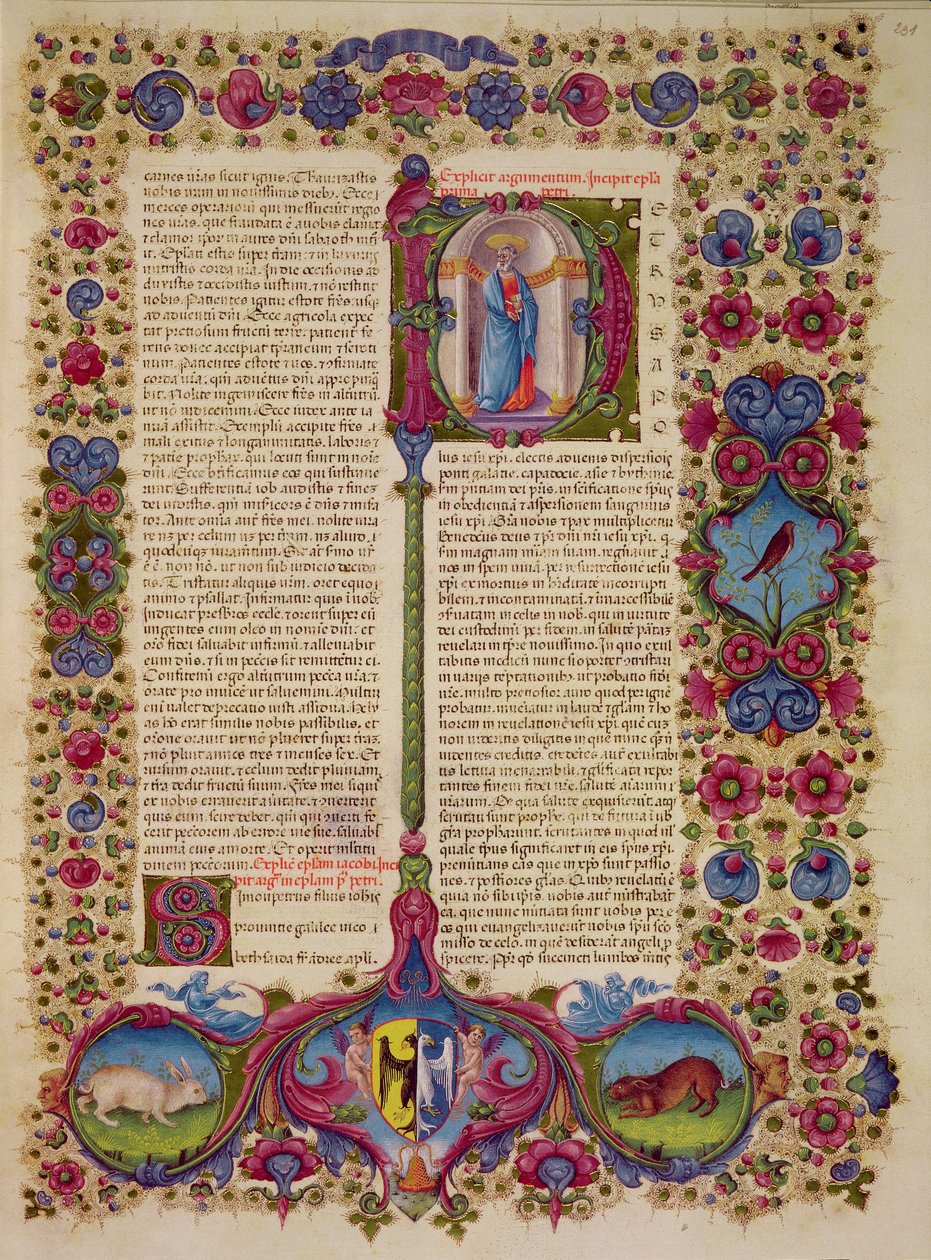 231
carnes uras sicut ignis. Thaurizastis
uobis iram in nouissimis dieb. Ecce
merces operariorum qui messuerunt regio
nes uras. que fraudata e auobis clamat
& clamor in aures dni sabaoth
Epulati estis super tram. & in luxuriis
nutristis corda ura. In die occisionis ad
iustum. & no restitit
uobis. Patientes igitur estote fres. usq
ad aduentu dni. Ecce agricola expec
tat preciosum fructu terre. patient fe
rens donec accipiat & seroti
num. Patientes estote & uos. & cfirmate
corda ura. qm aduetus dni appropinq
bit. Nolite ingemiscere fres in alterutru.
ut no iudicemini. Ecce iudex ante ia
nua assistit. Exemplu accipite fres.
mali exitus & longanimitatis. laboris &
patie prophas. qui locuti sunt in noie
dni. Ecce btificamus eos qui sustinue
runt. Sufferentia iob audistis & fine
dei uidistis. qm misericors e dns & misa
tor. Ante omnia aut fres mei. nolite iura
re. nq per celum nq per terram. nq aliud.
quodcuq iuramtum. Sit at smo ur
e e. non no. ut non sub iudicio decida
tis. Tristatur aliquis urm. oret equo ai
animo & psallat. Infirmatur quis i uob.
Inducat presbros eccle. & orent super eu
ungentes eum oleo in nomie dni. et
oro fidei saluabit infirmu. & alleuiabit
eum dns. & si in peccis sit remittetur ei.
Confitemi ergo alterutrum pecca ura. &
orate pro inuice ut saluemini. Multu
eni ualet deprecatio iusti assidua. Hely
as ho erat similis nobis passibilis. et
orone orauit ut no plueret super tram.
& no pluit annos tres & menses sex. Et
rursum orauit. & celum dedit pluuiam.
& tra dedit fructu suum. Fres mei siqui
ex uobis errauerit auitate. & conuerterit
quis eum. scire debet. qm qui conuerti fe
cerit peccorem ab errore uie sue. saluabit
anima eius amorte. Et operit multitu
dinem peccorum. Explic eplam iacobi. Inci
pit arg in eplam p petri.
S
imon petrus filius iohis
prouintie galilee uico
bethsaida fr andree apli.
Explicit argumentum. Incipit epla
prima petri.
P
E
T
R
V
S
A
P
O
lus iesu xpi. electis aduenis dispersiois
ponti galatie. capadocie. asie & bythinie.
scdm psciam dei pris. in scificatione spus
in obedientia & aspersionem sanguinis
iesu xpi. Gra uobis & pax multiplicetur
Benedictus deus & pr dni nri iesu xpi. q
scdm magnam miam suam. regnauit
nos in spem uiua. per resurrectione iesu
xpi ex mortuis in hditate incorrupti
bilem. & incontaminata. & inmarcessibile
cseruatam in celis in uob. qui in uirtute
dei custodimi per fidem. in salute parata
reuelari in tpre nouissimo. In quo exu
tabitis modicu nunc si oportet cristari
in uariis teptationib. ut probatio fidei
ure. multo pretiosior auro quod per igne
probatur. inueniatur in laude & glam & ho
norem in reuelatione iesu xpi. que cum
non uideritis diligitis. in que nunc
uidentes creditis. credetes aut exultabi
tis letitia inenarrabili. & glificata repor
tantes finem fidei ure. salute aiarum
urarum. De qua salute exquisierut atq
scrutati sunt prophe. qui de futura i uob
gra prophauerunt. scrutantes in quod uel
quale tpus significaret in eis spus xpi.
prenutians eas que in xpo sunt passio
nes. & postiores glas. Quib reuelatu e
quia no sibi ipsis. uobis aut ministrabat
ea. que nunc nutiata sunt uobis per e
os qui euangelizauerut uobis spu sco
misso de celo. in que desiderat angeli p
spicere. Ppr qd succincti lumbos mtis